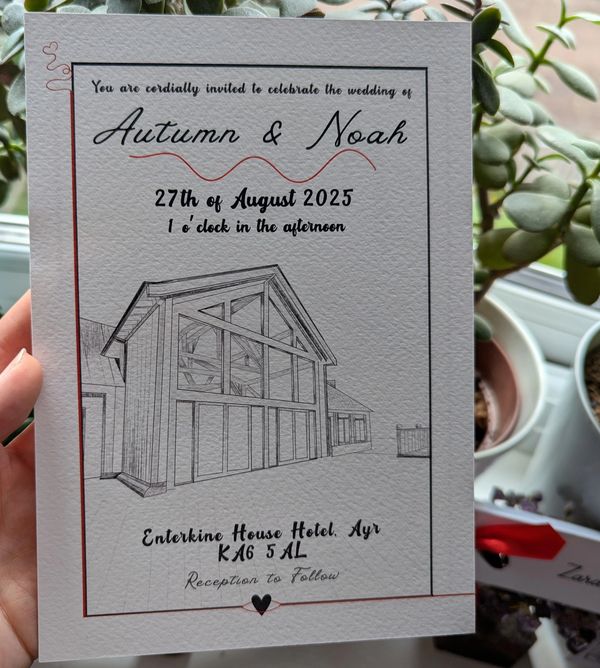 You are cordially invited to celebrate the wedding of
Autumn & Noah
27th of August 2025
1 o'clock in the afternoon
Enterkine House Hotel, Ayr
KA6 5AL
Reception to Follow
Zara